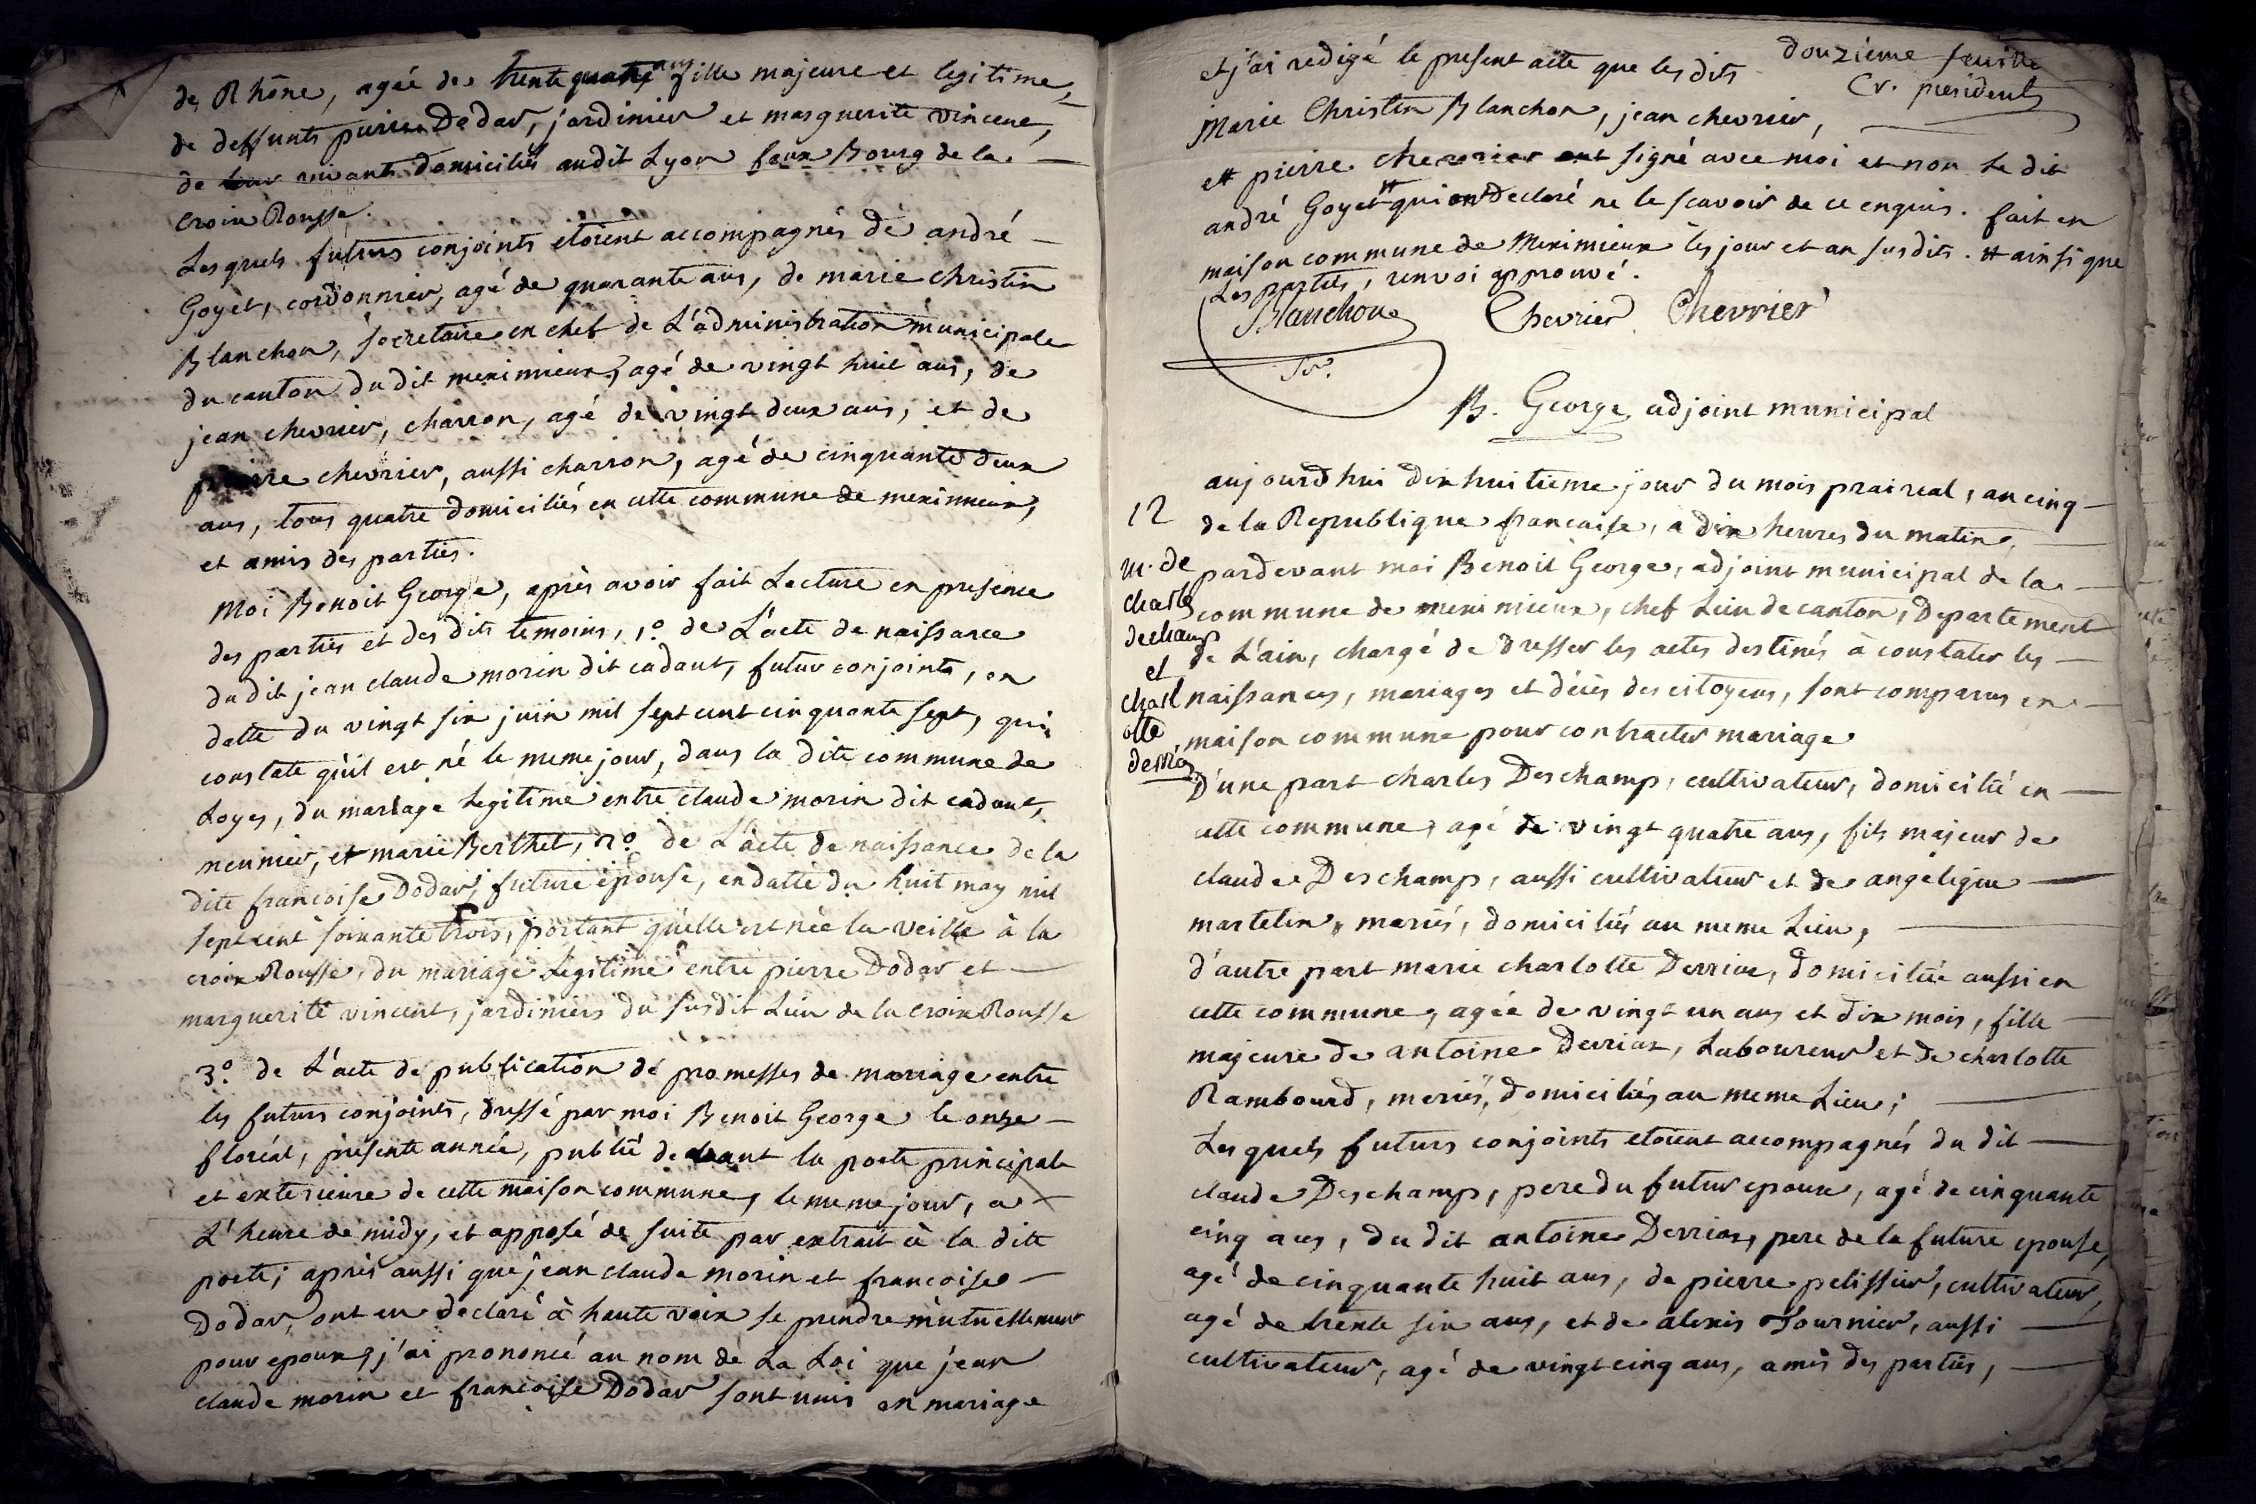 de Rhône, agée de trente quatre ans fille majeure et legitime
de deffunts pierre Dodar, jardinier et marguerite vincent,
de leur vivants domiciliés audit Lyon faux Bourg de la
croix Rousse.
Lesquels futurs conjoints étoient accompagnés de andré
Goyet, cordonnier, agé de quarante ans, de marie christin
Blanchon, secretaire en chef de L'administration municipale
du canton du dit meximieux, agé de vingt huit ans, de
jean chevrier, charron, agé de vingt deux ans, et de
pierre chevrier, aussi charron, agé de cinquante deux
ans, tous quatre domiciliés en cette commune de meximieux,
et amis des parties.
Moi Benoit George, après avoir fait Lecture en presence
des parties et des dits temoins, 1º. de L'acte de naissance
du dit jean claude morin dit cadaut, futur conjoints, en
datte du vingt six juin mil sept cent cinquante sept, qui
constate qu'il est né le meme jour, dans la dite commune de
Loyes, du mariage Legitime entre claude morin dit cadaut,
meunier, et marie Berthet, 2º. de L'acte de naissance de la
dite francoise Dodar, future épouse, en datte du huit may mil
sept cent soixante trois, portant qu'elle est née la veille à la
croix Rousse, du mariage Legitime entre pierre Dodar et
marguerite vincent, jardiniers du susdit Lieu de la croix Rousse
3º. de L'acte de publication de promesses de mariage entre
les futurs conjoints, dressé par moi Benoit George le onze
floréal, presente année, publié devant la porte principale
et exterieure de cette maison commune, le meme jour, a
L'heure de midy, et apposé de suite par extrait à la dite
porte; après aussi que jean claude morin et francoise
Dodar, ont eu déclaré à haute voix se prendre mutuellement
pour epoux, j'ai prononcé au nom de La Loi que jean
claude morin et françoise Dodar sont unis en mariage
douzième feuille
Cr. president
et j'ai redigé le present acte que les dits
Marie Christin Blanchon, jean chevrier,
et pierre chevrier ont signé avec moi et non le dit
andré Goyet # qui ont declaré ne le scavoir de ce enquis. fait en
maison commune de Meximieux les jour et an susdits. # ainsi que
Les parties, renvoi approuvé.
Blanchon Chevrier Chevrier
Sre.
B. George, adjoint municipal
12
m. de
charles
dechamp
et
charl
otte
derriaz
aujourd'hui dix huitieme jour du mois praireal, an cinq
de la Republique francaise, a dix heures du matin,
pardevant moi Benoit George, adjoint municipal de la
commune de meximieux, chef Lieu de canton, Departement
de L'ain, chargé de dresser les actes destinés à constater les
naissances, mariages et décès des citoyens, sont comparus en
maison commune pour contracter mariage
D'une part charles Deschamp, cultivateur, domicilié en
cette commune, agé de vingt quatre ans, fils majeur de
claude Deschamp, aussi cultivateur et de angelique
martelin, mariés, domiciliés au meme Lieu,
d'autre part marie charlotte Derriaz, domiciliée aussi en
cette commune, agée de vingt un ans et dix mois, fille
majeure de antoine Derriaz, Laboureur et de charlotte
Rambourd, mariés, domiciliés au meme Lieu;
Lesquels futurs conjoints etoient accompagnés du dit
claude Deschamp, pere du futur epoux, agé de cinquante
cinq ans, du dit antoine Derriaz, pere de la future epouse,
agé de cinquante huit ans, de pierre pelissier, cultivateur,
agé de trente six ans, et de alexis Fournier, aussi
cultivateur, agé de vingt cinq ans, amis des parties,